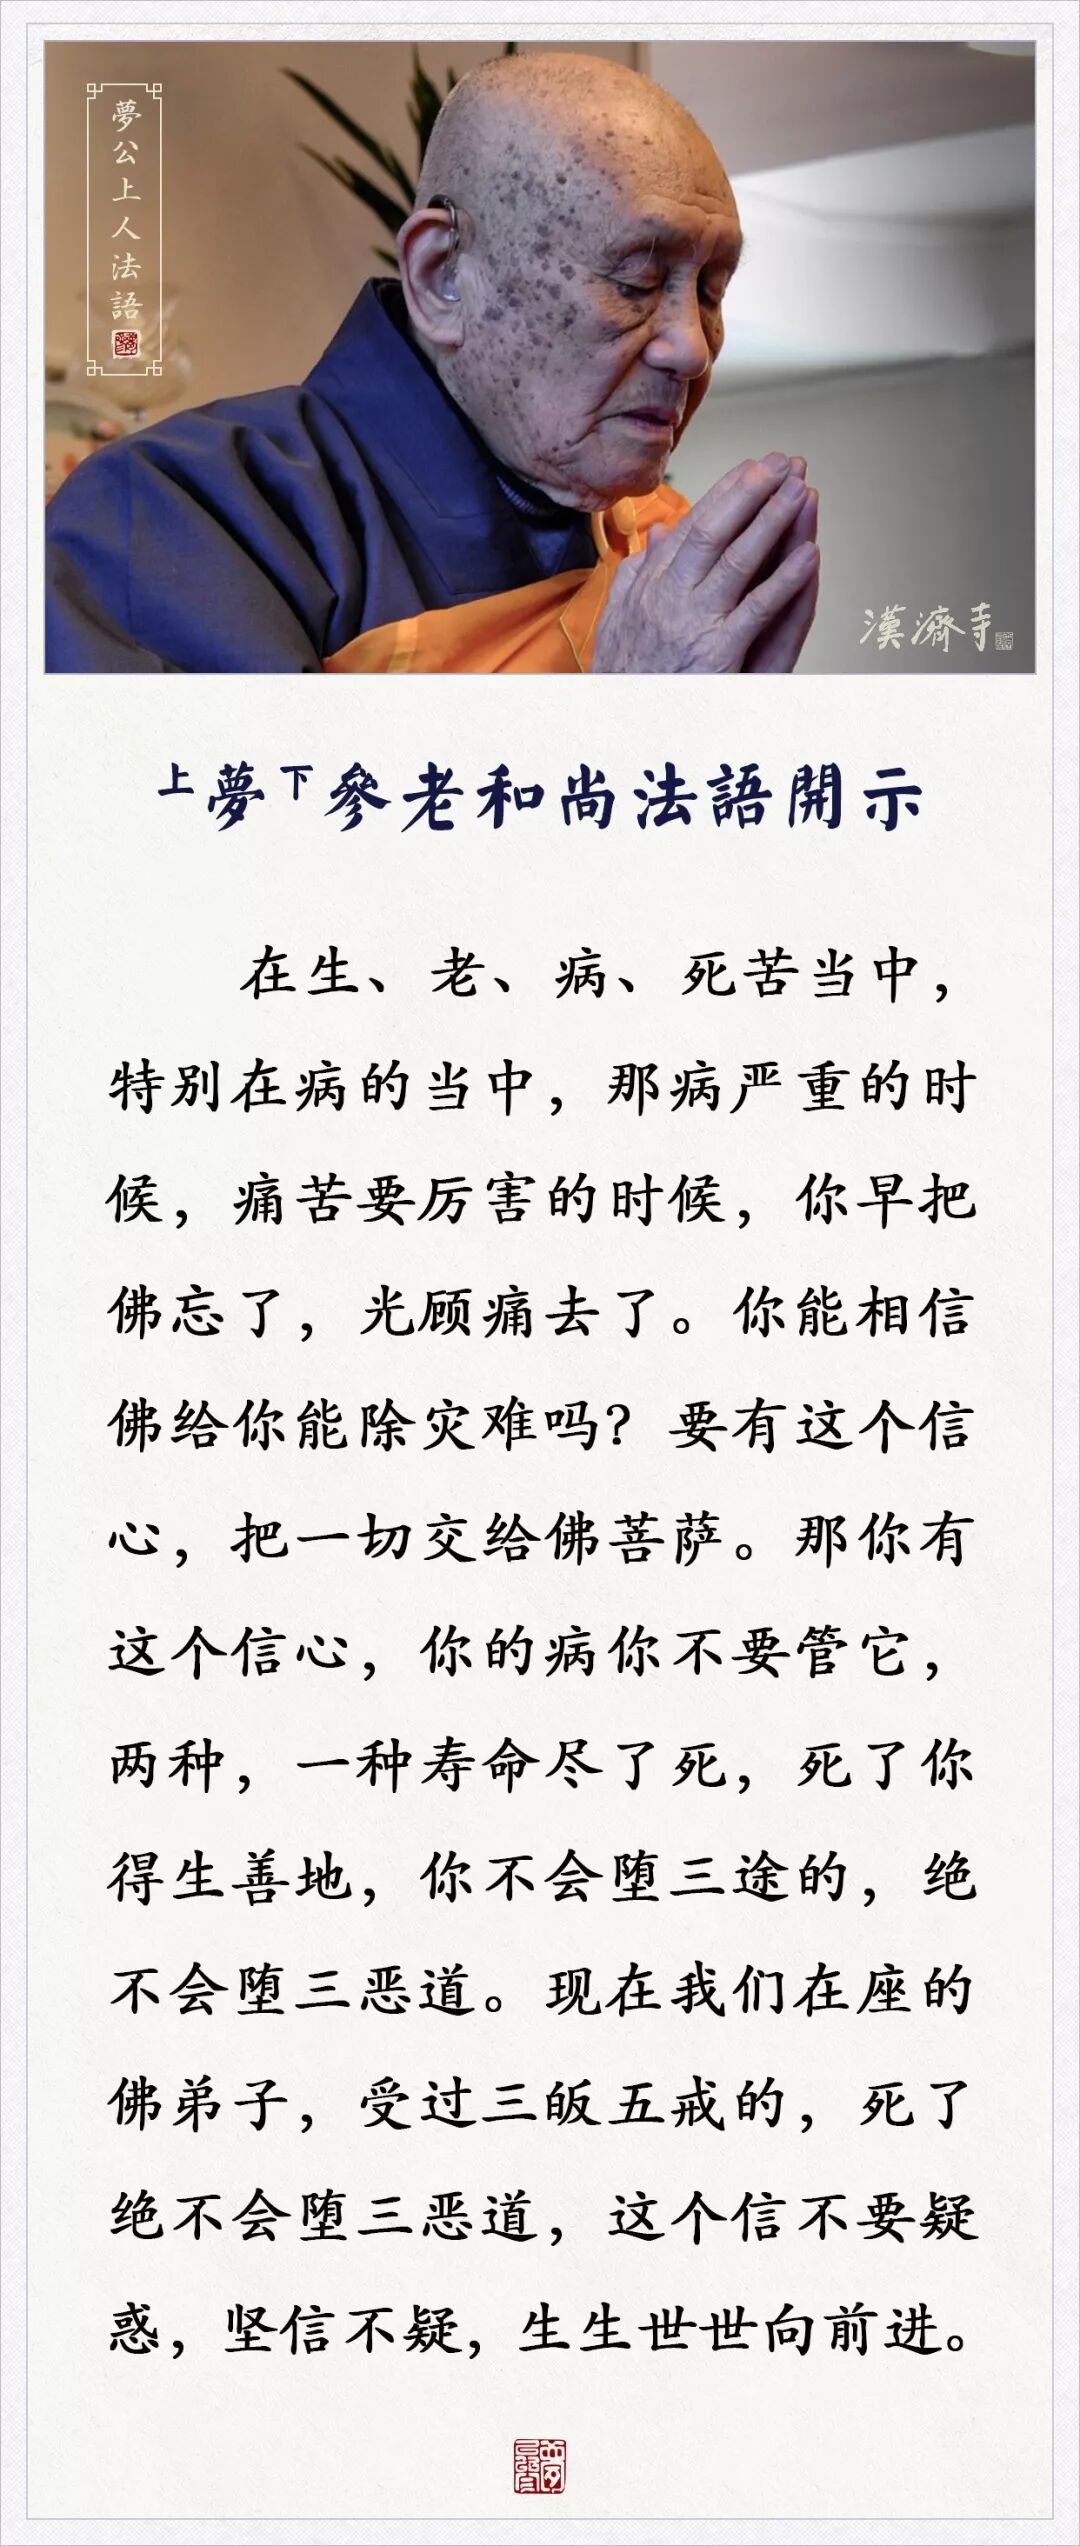 夢公上人法語
漢濟寺
上夢下參老和尚法語開示
在生、老、病、死苦当中，
特别在病的当中，那病严重的时
候，痛苦要厉害的时候，你早把
佛忘了，光顾痛去了。你能相信
佛给你能除灾难吗？要有这个信
心，把一切交给佛菩萨。那你有
这个信心，你的病你不要管它，
两种，一种寿命尽了死，死了你
得生善地，你不会堕三途的，绝
不会堕三恶道。现在我们在座的
佛弟子，受过三皈五戒的，死了
绝不会堕三恶道，这个信不要疑
惑，坚信不疑，生生世世向前进。